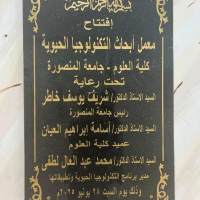 بسم الله الرحمن الرحيم
افتتاح
معمل أبحاث التكنولوجيا الحيوية
كلية العلوم - جامعة المنصورة
تحت رعاية
السيد الاستاذ الدكتور/ شريف يوسف خاطر
رئيس جامعة المنصورة
السيد الاستاذ الدكتور/ أسامة إبراهيم العيان
عميد كلية العلوم
السيد الاستاذ الدكتور/ محمد عبد العال لطفى
مدير برنامج التكنولوجيا الحيوية وتطبيقاتها
وذلك يوم السبت ٢٨ يونيو ٢٠٢٥م